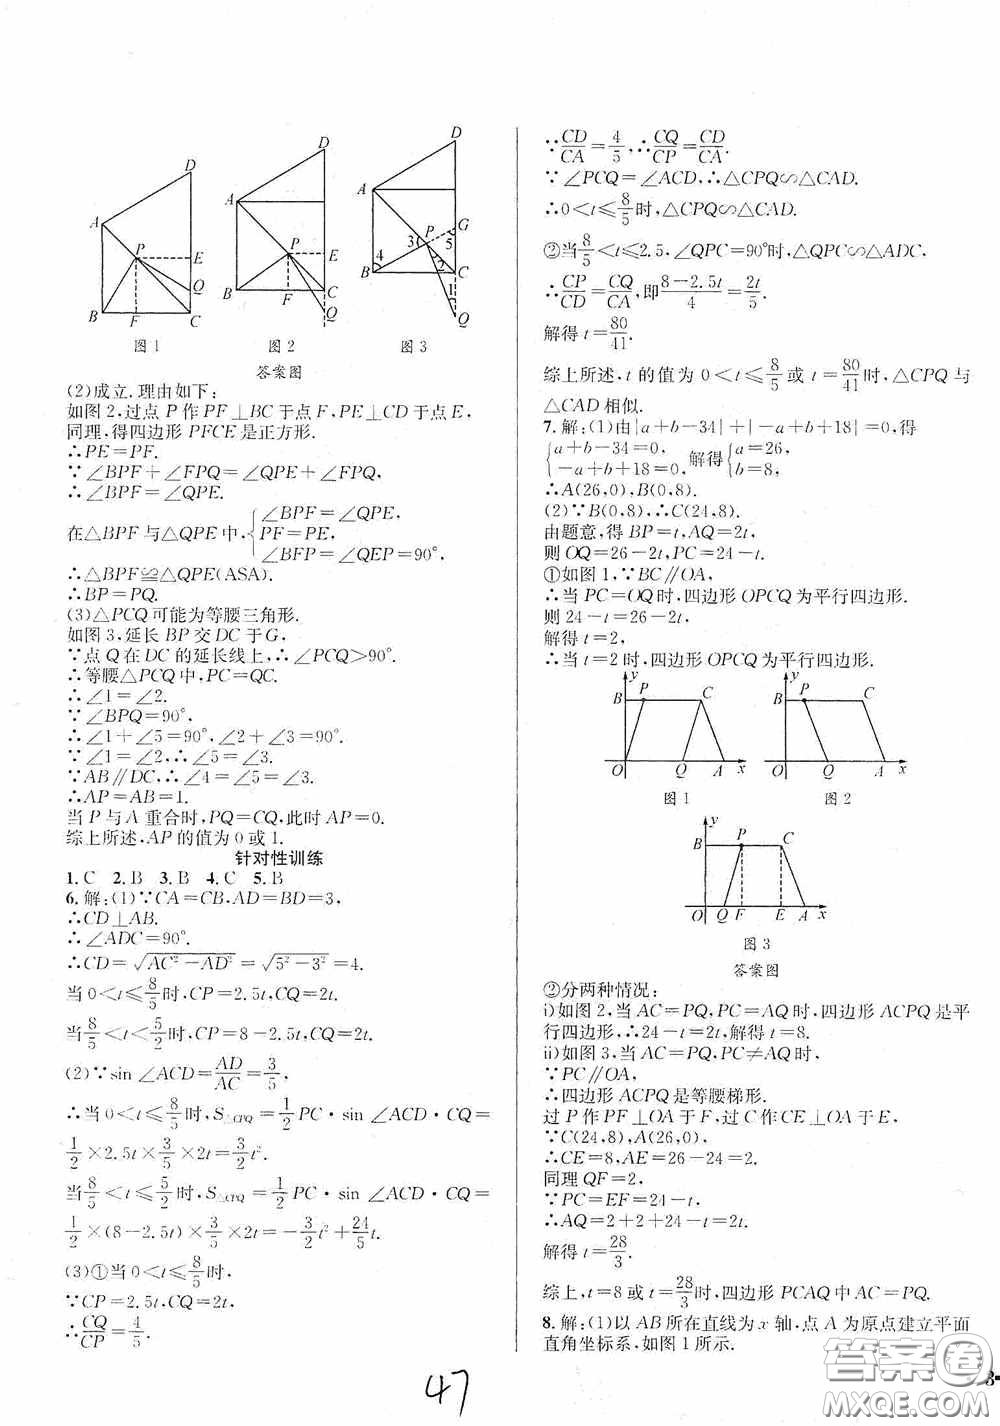 D
A
P
E
Q
B
F
C
图1
D
A
P
E
B
F
C
Q
图2
D
A
G
3
P
5
4
2
B
C
1
Q
图3
答案图
(2)成立.理由如下:
如图2,过点P作PF⊥BC于点F,PE⊥CD于点E,
同理,得四边形PFCE是正方形.
∴PE=PF.
∵∠BPF+∠FPQ=∠QPE+∠FPQ,
∴∠BPF=∠QPE.
在△BPF与△QPE中,{∠BPF=∠QPE,
PF=PE,
∠BFP=∠QEP=90°,
∴△BPF≌△QPE(ASA).
∴BP=PQ.
(3)△PCQ可能为等腰三角形.
如图3,延长BP交DC于G,
∵点Q在DC的延长线上,∴∠PCQ>90°.
∴等腰△PCQ中,PC=QC.
∴∠1=∠2.
∵∠BPQ=90°,
∴∠1+∠5=90°,∠2+∠3=90°.
∵∠1=∠2,∴∠5=∠3.
∵AB∥DC,∴∠4=∠5=∠3.
∴AP=AB=1.
当P与A重合时,PQ=CQ,此时AP=0.
综上所述,AP的值为0或1.
针对性训练
1.C 2.B 3.B 4.C 5.B
6.解:(1)∵CA=CB,AD=BD=3,
∴CD⊥AB.
∴∠ADC=90°.
∴CD=√(AC²-AD²)=√(5²-3²)=4.
当0<t≤8/5时,CP=2.5t,CQ=2t.
当8/5<t<5/2时,CP=8-2.5t,CQ=2t.
(2)∵sin∠ACD=AD/AC=3/5,
∴当0<t≤8/5时,S△CPQ=1/2PC·sin∠ACD·CQ=
1/2×2.5t×3/5×2t=3/2t².
当8/5<t≤5/2时,S△CPQ=1/2PC·sin∠ACD·CQ=
1/2×(8-2.5t)×3/5×2t=-3/2t²+24/5t.
(3)①当0<t≤8/5时,
∵CP=2.5t,CQ=2t,
∴CQ/CP=4/5.
∵CD/CA=4/5,∴CQ/CP=CD/CA.
∵∠PCQ=∠ACD,∴△CPQ∽△CAD.
∴0<t≤8/5时,△CPQ∽△CAD.
②当8/5<t≤2.5,∠QPC=90°时,△CPQ∽△ADC.
∴CP/CD=CQ/CA,即(8-2.5t)/4=2t/5.
解得t=80/41.
综上所述,t的值为0<t≤8/5或t=80/41时,△CPQ与
△CAD相似.
7.解:(1)由|a+b-34|+|-a+b+18|=0,得
{a+b-34=0, 解得{a=26,
-a+b+18=0, b=8,
∴A(26,0),B(0,8).
(2)∵B(0,8),∴C(24,8).
由题意,得BP=t,AQ=2t,
则OQ=26-2t,PC=24-t.
①如图1,∵BC∥OA,
∴当PC=OQ时,四边形OPCQ为平行四边形.
则24-t=26-2t,
解得t=2,
∴当t=2时,四边形OPCQ为平行四边形.
y
B
P
C
O
Q
A
x
图1
y
B
P
C
O
Q
A
x
图2
y
B
P
C
O
Q
F
E
A
x
图3
答案图
②分两种情况:
i)如图2,当AC=PQ,PC=AQ时,四边形ACPQ是平
行四边形,∴24-t=2t,解得t=8.
ii)如图3,当AC=PQ,PC≠AQ时,
∵PC∥OA,
∴四边形ACPQ是等腰梯形.
过P作PF⊥OA于F,过C作CE⊥OA于E,
∵C(24,8),A(26,0),
∴CE=8,AE=26-24=2.
同理QF=2,
∵PC=EF=24-t,
∴AQ=2+2+24-t=2t.
解得t=28/3.
综上,t=8或t=28/3时,四边形PCAQ中AC=PQ.
8.解:(1)以AB所在直线为x轴,点A为原点建立平面
直角坐标系,如图1所示.
47
答案圈
MXQE.COM